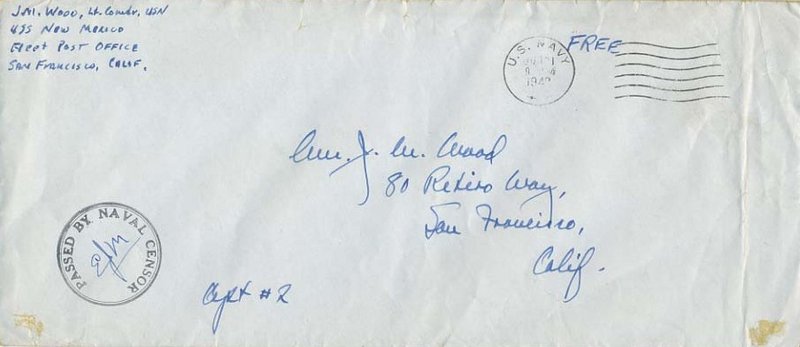 J.M. Wood, Lt. Comdr, USN
USS New Mexico
Fleet Post Office
San Francisco, Calif.
U.S. NAVY
1942
FREE
Mrs. J. M. Wood
80 Retiro Way,
San Francisco,
Calif.
PASSED BY NAVAL CENSOR
Apt #2